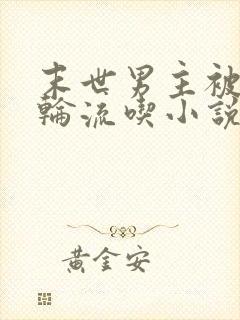 末世男主被
輪流喫小説
黃金安